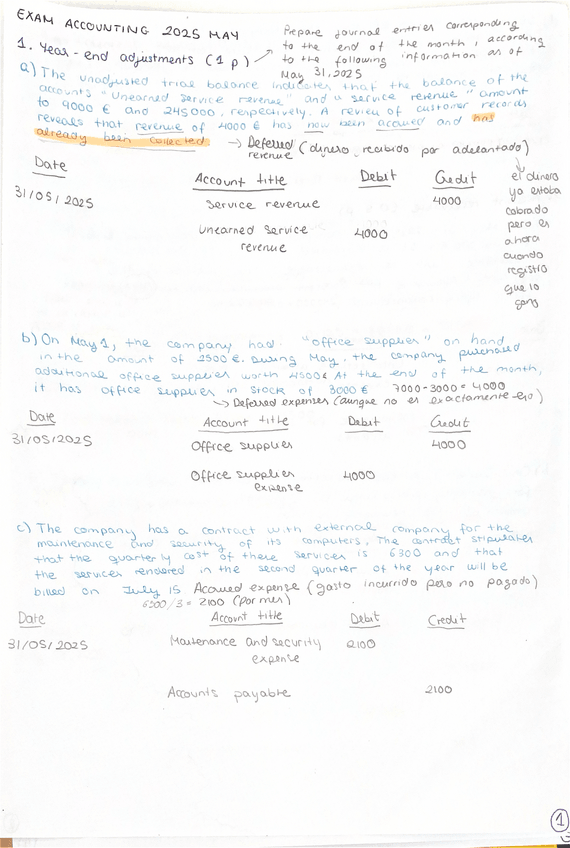 EXAM ACCOUNTING 2025 MAY
Prepare journal entries corresponding
to the end of the month, according
to the following information as of
May 31, 2025
1. Year-end adjustments (1 p)
a) The unadjusted trial balance indicates that the balance of the
accounts "Unearned service revenue" and "service revenue" amount
to 9000 € and 245000, respectively. A review of customer records
reveals that revenue of 4000 € has now been accrued and has
already been collected
→ Deferred (dinero recibido por adelantado)
revenue
el dinero
ya estaba
cobrado
pero es
ahora
cuando
registro
que lo
gano
Date Account title Debit Credit
31/05/2025 Service revenue 4000
Unearned service 4000
revenue
b) On May 1, the company had "office supplier" on hand
in the amount of 2500 €. During May, the company purchased
additional office supplier worth 4500€ At the end of the month,
it has office supplier in stock of 3000 € 7000-3000 = 4000
→ Deferred expenses (aunque no es exactamente eso)
Date Account title Debit Credit
31/05/2025 Office supplier 4000
Office supplier 4000
expense
c) The company has a contract with external company for the
maintenance and security of its computers. The contract stipulates
that the quarterly cost of these services is 6300 and that
the services rendered in the second quarter of the year will be
billed on July 15 Accrued expense (gasto incurrido pero no pagado)
6300/3 = 2100 (por mes)
Date Account title Debit Credit
31/05/2025 Maitenance and security 2100
expense
Accounts payable 2100
1